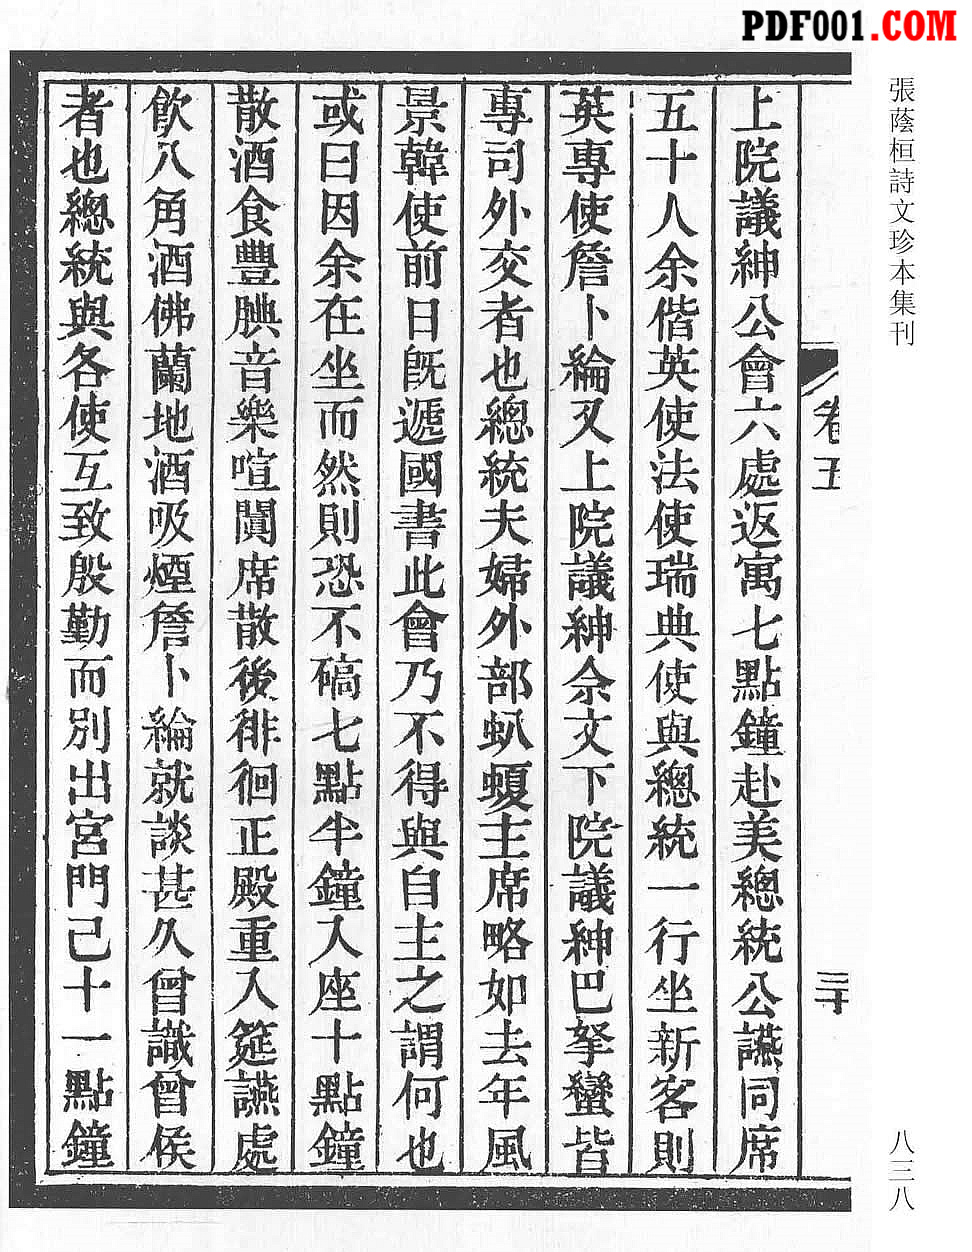 PDF001.COM
張蔭桓詩文珍本集刊
八三八
卷五
三十
上院議紳公會六處返寓七點鐘赴美總統公讌同席
五十人余偕英使法使瑞典使與總統一行坐新客則
英專使詹卜綸又上院議紳余文下院議紳巴孥蠻皆
專司外交者也總統夫婦外部叭嗄主席略如去年風
景韓使前日旣遞國書此會乃不得與自主之謂何也
或曰因余在坐而然則恐不碻七點半鐘入座十點鐘
散酒食豐腆音樂喧闐席散後徘徊正殿重入筵讌處
飲八角酒佛蘭地酒吸煙詹卜綸就談甚久曾識曾侯
者也總統與各使互致殷勤而別出宮門已十一點鐘